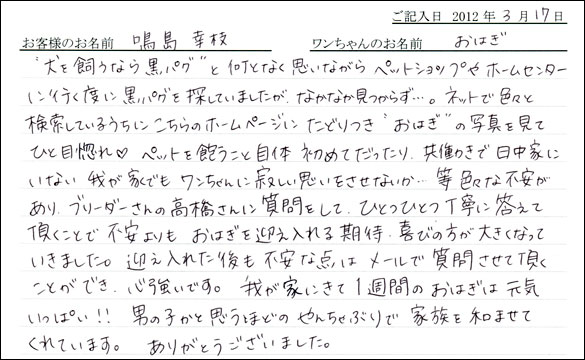 ご記入日 2012 年 3 月 17 日
お客様のお名前 鳴島 幸枝 ワンちゃんのお名前 おはぎ
"犬を飼うなら黒パグ"と何となく思いながら ペットショップや ホームセンター
に行く度に黒パグを探していましたが、なかなか見つからず…。ネットで色々と
検索しているうちにこちらのホームページに たどりつき "おはぎ"の写真を見て
ひと目惚れ♡ ペットを飼うこと自体 初めてだったり、共働きで日中家に
いない 我が家でも ワンちゃんに寂しい思いをさせないか… 等 色々な不安が
あり、ブリーダーさんの高橋さんに質問をして、ひとつひとつ丁寧に答えて
頂くことで 不安よりも おはぎを迎え入れる期待・喜びの方が大きくなって
いきました。迎え入れた後も不安な点は メールで質問させて頂く
ことができ、心強いです。 我が家にきて1週間のおはぎは元気
いっぱい!! 男の子かと思うほどの やんちゃぶりで 家族を和ませて
くれています。 ありがとうございました。